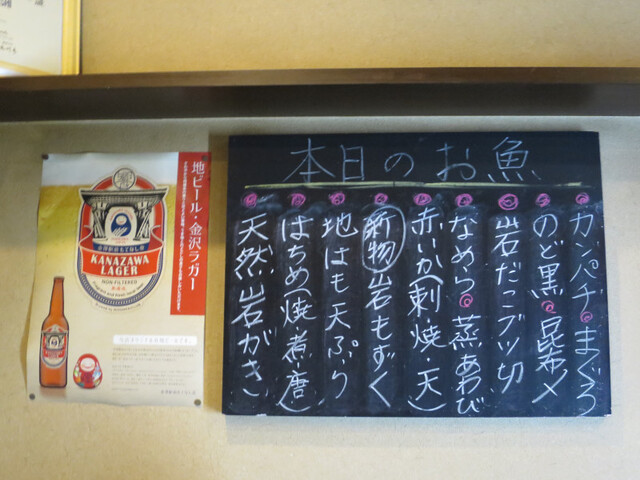 本日のお魚
カンパチ まぐろ
のど黒 昆布〆
岩だこブツ切
なめら 蒸あわび
赤いか(刺・焼・天)
新物 岩もずく
地はも天ぷら
はちめ(焼・煮・唐)
天然岩がき
地ビール・金沢ラガー
KANAZAWA
LAGER
NON-FILTERED